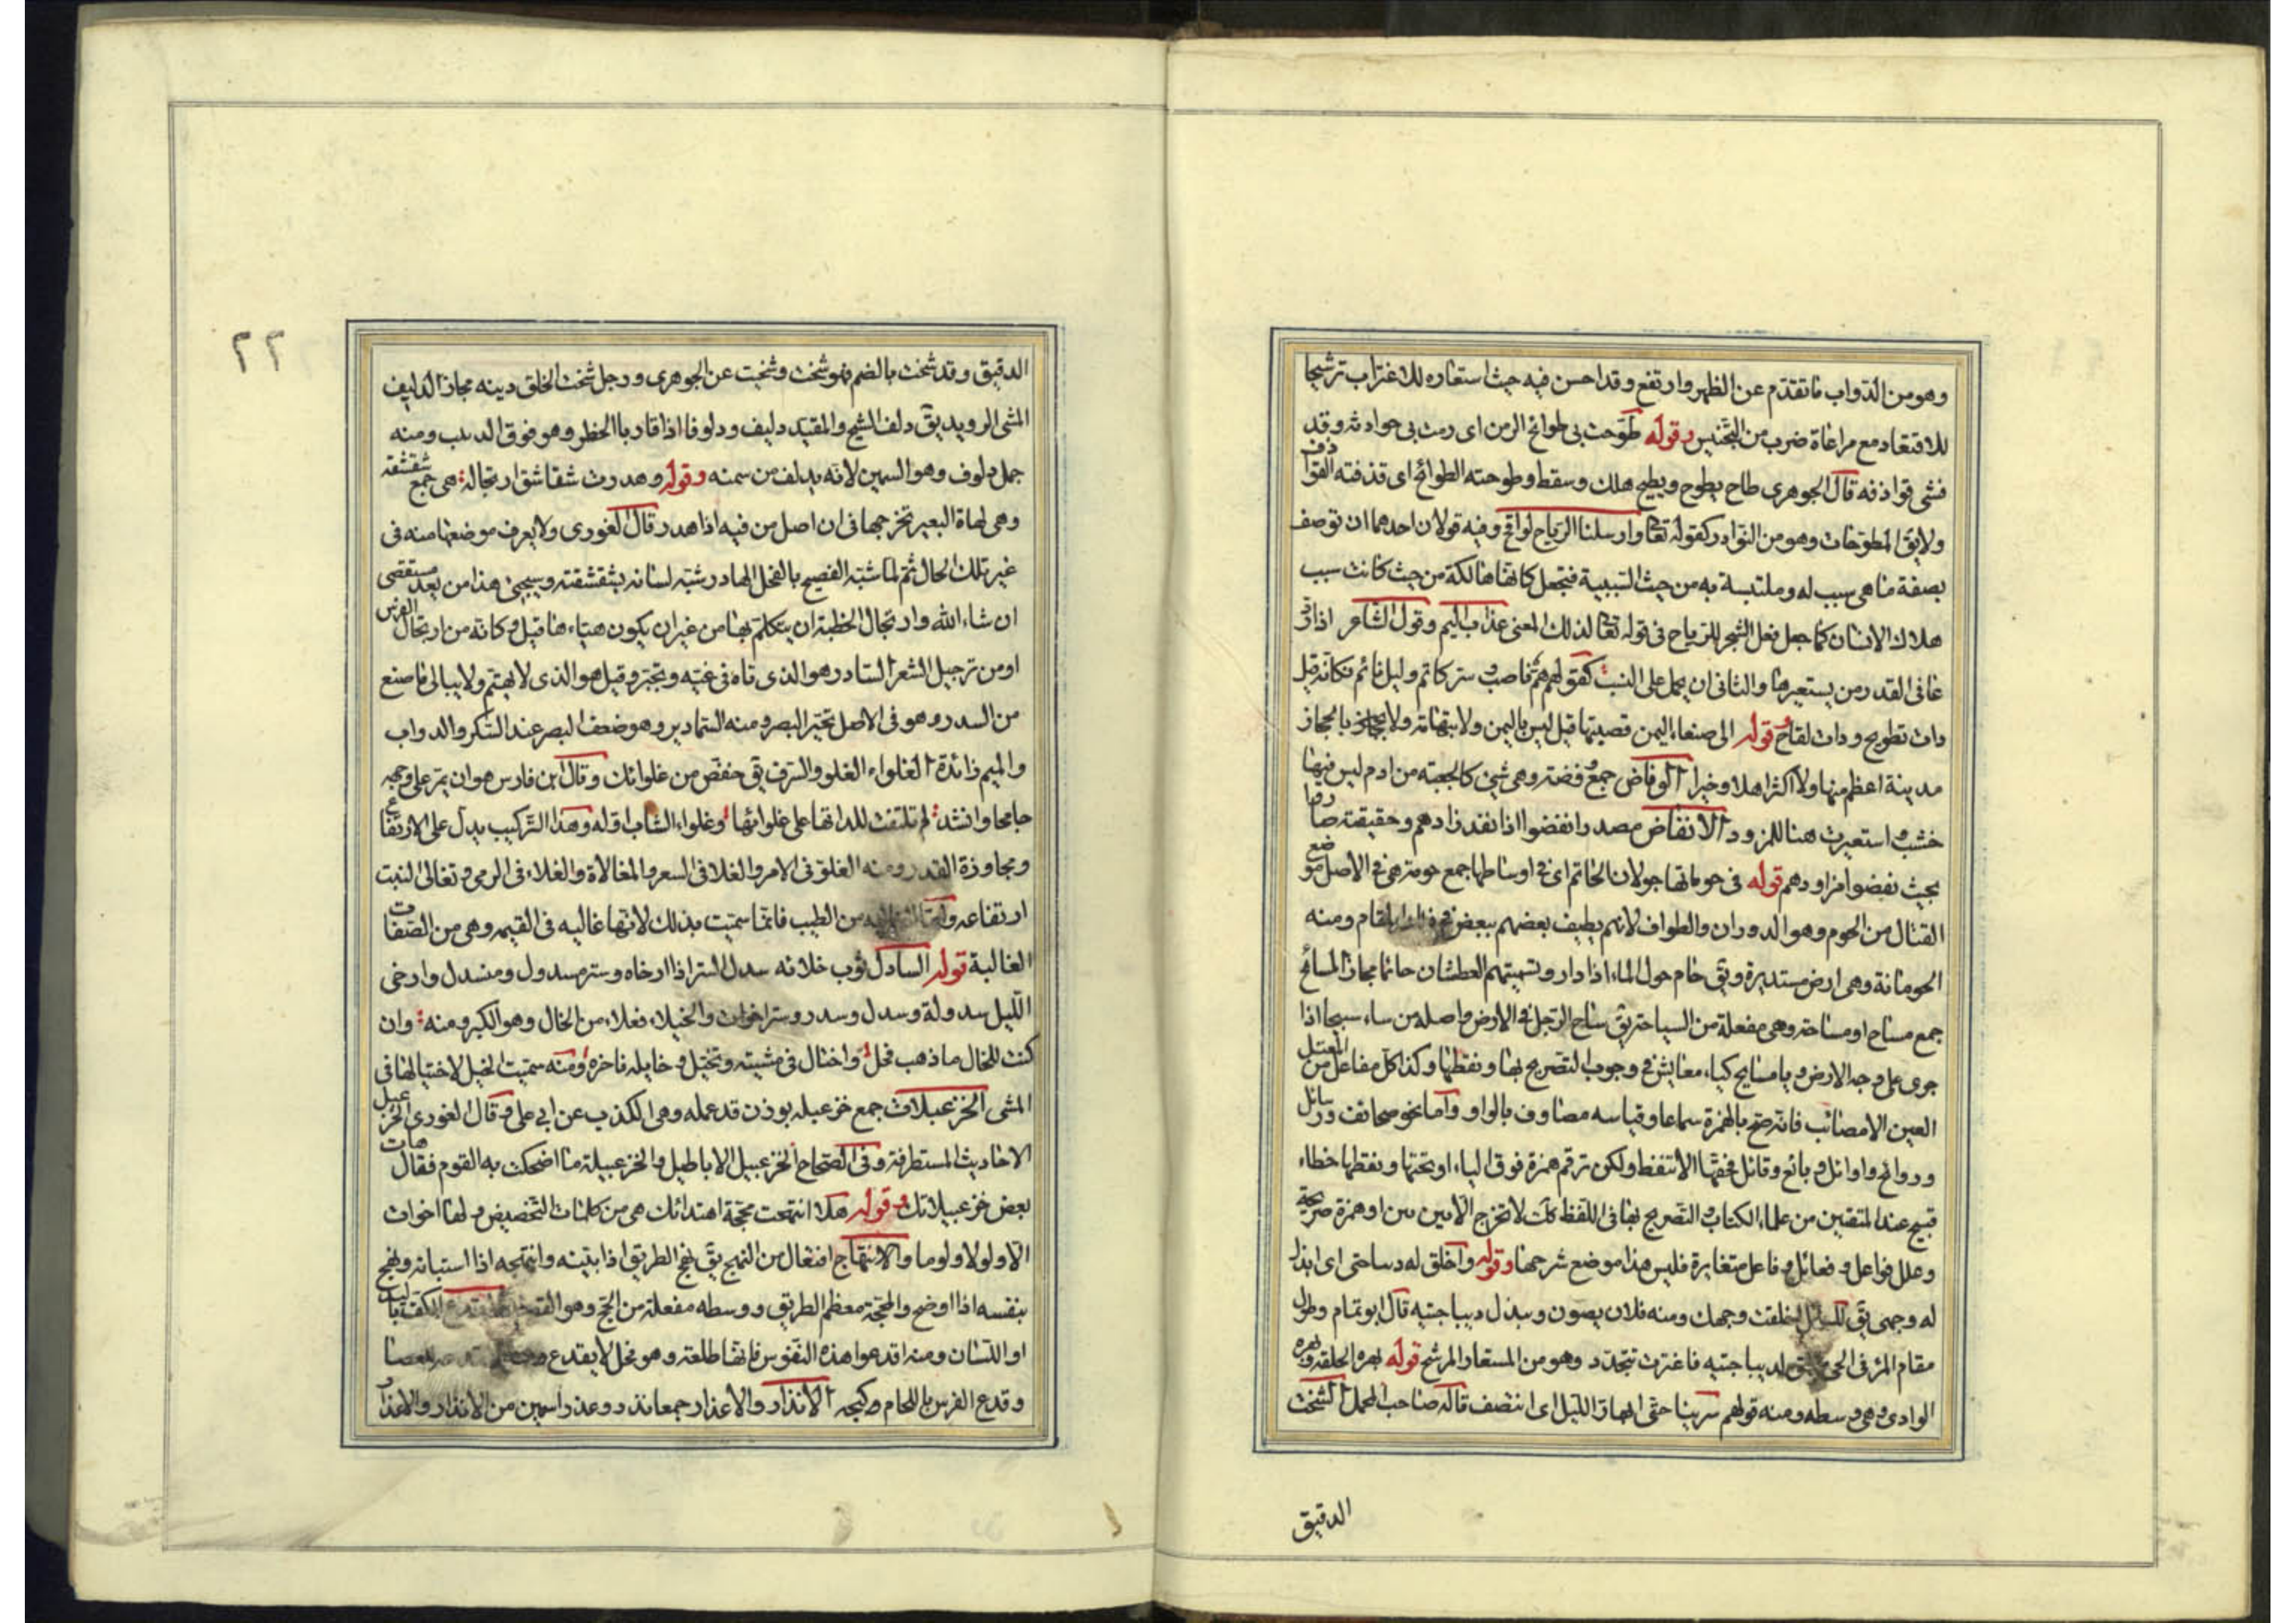 وهو من الدواب ما تقدم عن الظهر وارتفع وقد احسن فيه حيث استعاره للاغتراب ترشيحا
للاقتعاد مع مراعاة ضرب من التجنيس وقوله طوّحت بي طوائح الزمن اى رمت بي حوادثه وقد
فشى قواذفه قال الجوهرى طاح يطوح ويطيح هلك وسقط وطوحته الطوائح اى قذفته القواذف
ولا يق المطوحات وهو من النوادر كقوله تعا وارسلنا الرياح لواقح وفيه قولان احدهما ان توصف
بصفة ما هى سبب له وملتبسة به من حيث السببية فتجعل كانها هالكة من حيث كانت سبب
هلاك الانسان كما جعل فعل الشجر للرياح فى قوله تعا لذلك المعنى عذاب اليم وقول الشاعر اذا رد
عافى القدر من يستعيرها والثانى ان يحمل على النسب كقولهم هم ناصب وسر كاتم وليل نائم فكانه قيل
ذات تطويح وذات لقاح قوله الى صنعاء اليمن قصبتها قيل ليس باليمن ولا بتهامة ولا بالحجاز
مدينة اعظم منها ولا اكثر اهلا وخيرا الوفاض جمع وفضة وهى شىء كالجعبة من ادم ليس فيها
خشب استعيرت هنا للمزود الانفاض مصدر انفضوا اذا نفد زادهم وحقيقته صاروا
بحيث نفضوا مزاودهم قوله فى حوماتها جولان الحائم اى فى اوساطها جمع حومة هى فى الاصل موضع
القتال من الحوم وهو الدوران والطواف لانهم يطيف بعضهم ببعض فى المقام ومنه
الحومانة وهى ارض مستديرة ويق حام حول الماء اذا دار وتسميتهم العطشان حائما مجاز المسائح
جمع مساح او مساحة وهى مفعلة من السياحة يق ساح الرجل فى الارض واصله من ساء سيحا اذا
جرى على وجه الارض ويا مسايح كياء معايش فى وجوب التصريح بها ونقطها وكذا كل مفاعل من المعتل
العين الا مصائب فانه صح بالهمزة سماعا وقياسه مصاوب بالواو واما نحو صحائف ورسائل
وروائح واوائل وبائع وقائل فحقها الا تنقط ولكن ترقم همزة فوق الياء او تحتها ونقطها خطاء
قبيح عند المتقين من علماء الكتاب والتصريح بها فى اللفظ كك لا تخرج الا بين بين او همزة صريحة
وعلل فواعل وفعائل وفاعل متغايرة فليس هذا موضع شرحها وقوله واخلق له ديباجتى اى ابذل
له وجهى يق للسائل اخلقت وجهك ومنه فلان يصون ويبذل ديباجتيه قال ابو تمام وطول
مقام المرء فى الحى مخلق لديباجتيه فاغترب تتجدد وهو من المستعار المرشح قوله بهرة الحلقة وبهرة
الوادى وهى وسطه ومنه قولهم سرينا حتى ابهار الليل اى انتصف قاله صاحب المجمل الشخت
الدقيق
٢٢
الدقيق وقد شخت بالضم فهو شخت وشخيت عن الجوهرى ورجل شخت الخلق دينه مجاز الدليف
المشى الرويد يق دلف الشيخ والمقيد دليف ودلوفا اذا قاربا الخطو وهو فوق الدبيب ومنه
جمل دلوف وهو السمين لانه يدلف من سمنه وقوله وهدرت شقاشق ارتجاله هى جمع شقشقة
وهى لهاة البعير تخرجها فى ان اصل من فيه اذا هدر قال الغورى ولا يعرف موضعها منه فى
غير تلك الحال ثم لما شبه الفصيح بالفحل الهادر شبه لسانه بشقشقته وسيجىء هذا من بعد مستقصى
ان شاء الله وارتجال الخطبة ان يتكلم بها من غير ان يكون هياءها قبل وكانه من ارتجال الفرس
او من ترجيل الشعر السادر هو الذى تاه فى غيه وتحير وقيل هو الذى لا يهتم ولا يبالى ما صنع
من السدر وهو فى الاصل تحير البصر ومنه السمادير وهو ضعف البصر عند السكر والدواب
والميم زائدة الغلواء الغلو والسرف يق خفض من غلوائك وقال ابن فارس هو ان يمر على وجهه
جامحا وانشد لم تلتفت للداتها على غلوائها وغلواء الشباب اوله وهذا التركيب يدل على الارتفاع
ومجاوزة القدر ومنه الغلو فى الامر والغلا فى السعر والمغالاة والغلاء فى الرمى وتغالى النبت
ارتفاعه واما الغالية من الطيب فانما سميت بذلك لانها غاليه فى القيمه وهى من الصفات
الغالبة قوله السادل ثوب خلائه سدل الستر اذا ارخاه وستر مسدول ومنسدل وارخى
الليل سدولة وسدل وسدر وستر اخوات والخيلاء فعلاء من الخال وهو الكبر ومنه وان
كنت للخال ما ذهب فخل واختال فى مشيته وتخيل وخايله فاخره ومنه سميت الخيل لاختيالها فى
المشى الخزعبلات جمع خزعبله بوزن قدعمله وهى الكذب عن ابى على وقال الغورى الخزعبيل
الاحاديث المستطرفة وفى الصحاح الخزعبيل الاباطيل والخزعبيلة ما اضحكت به القوم فقال هات
بعض خزعبيلاتك وقوله هلا انتهجت محجة اهتدائك هى من كلمات التحضيض ولها اخوات
الا ولولا ولوما والانتهاج افتعال من النهج يق نهج الطريق اذا بينه وانتهجه اذا استبانه ونهج
بنفسه اذا اوضح والمحجة معظم الطريق ووسطه مفعلة من الحج وهو القصد القدع الكف باليد
او اللسان ومنه اقدعوا هذه النفوس فانها طلعة وهو فحل لا يقدع
وقدع الفرس باللجام وكبحه الانذار والاعذار جمعا نذر وعذر اسمين من الانذار والاعذار